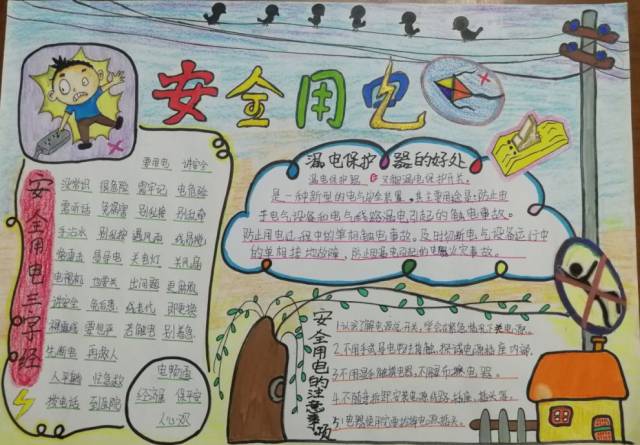 安全用电
安全用电三字经
要用电 讲安全
没常识 很危险 需牢记 电危险
需听话 免祸害 别乱接 别乱牵
手沾水 别乱碰
电视机 出问题
讲安全
裸露线 若触电 别着急
先断电 再救人
人平躺 忙急救
拨电话 到医院
电畅通
经济强 保平安
人人欢
漏电保护器的好处
漏电保护器 又称漏电保护开关。
是一种新型的电气安全装置，其主要用途是：防止由
于电气设备和电气线路漏电引起的触电事故。
防止用电过程中的单相触电事故。及时切断电气设备运行中
的单相接地故障，防止因漏电引起的电气火灾事故。
安全用电的注意事项
1.认识了解电源总开关，学会在紧急情况下关电源。
2.不用手或导电物去接触、探试电源插座内部。
3.不用湿手触摸电器，不用湿布擦电器。
4.不随意拆卸安装电源线路、插座、插头等。
5.电器使用完毕后拔电源插头。